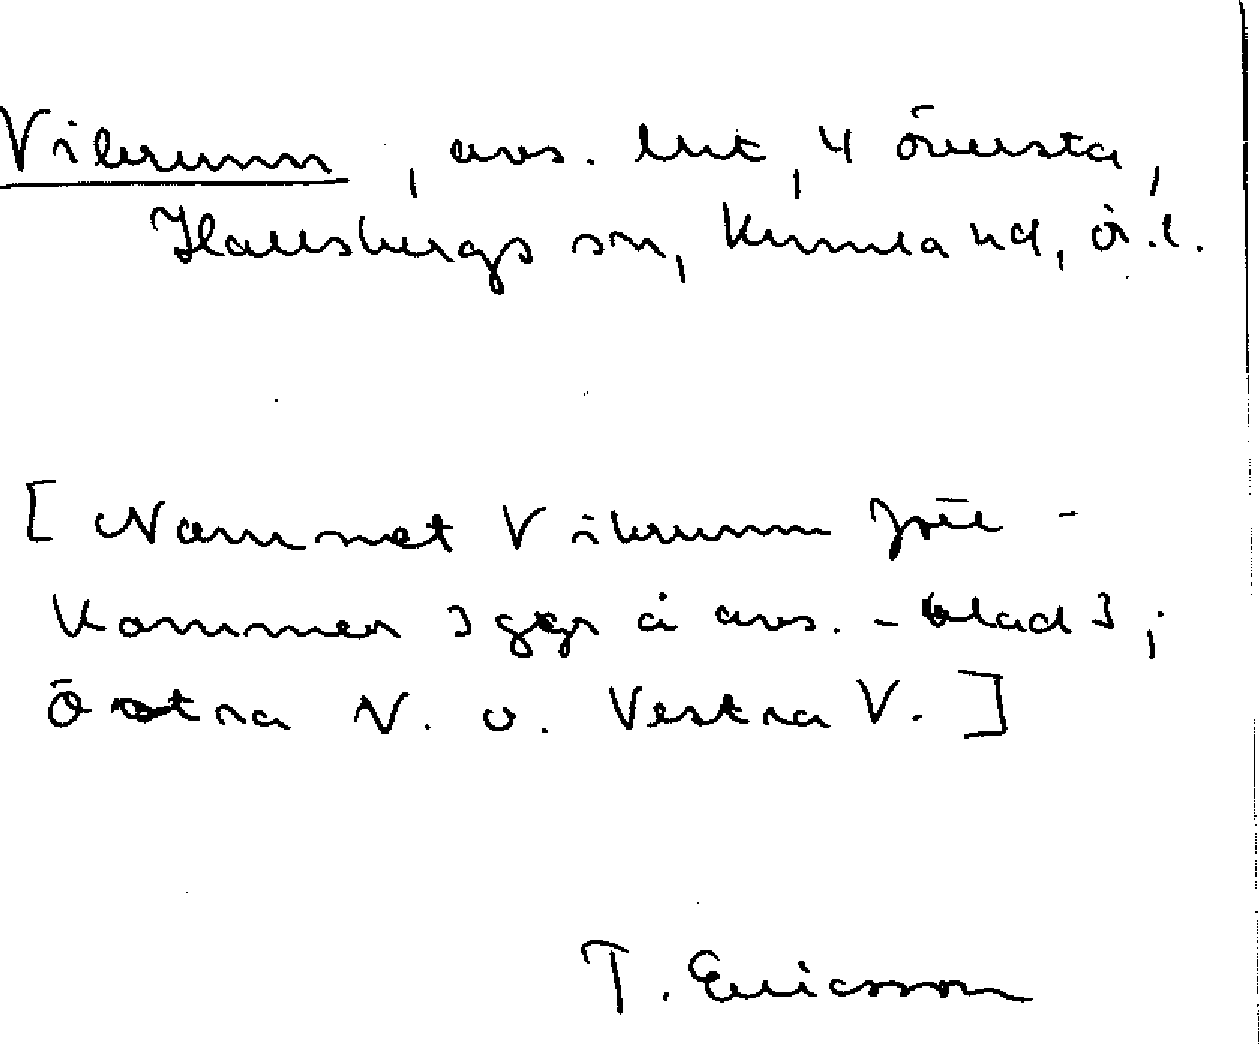 Vikrumm, avs. lut, 4 översta,
Hallsbergs sn, Kumla hd, ö.l.
[Namnet Vikrumm före-
kommer 3 ggr å avs.-blad 3;
Östra V. o. Vestra V.]
T. Ericsson